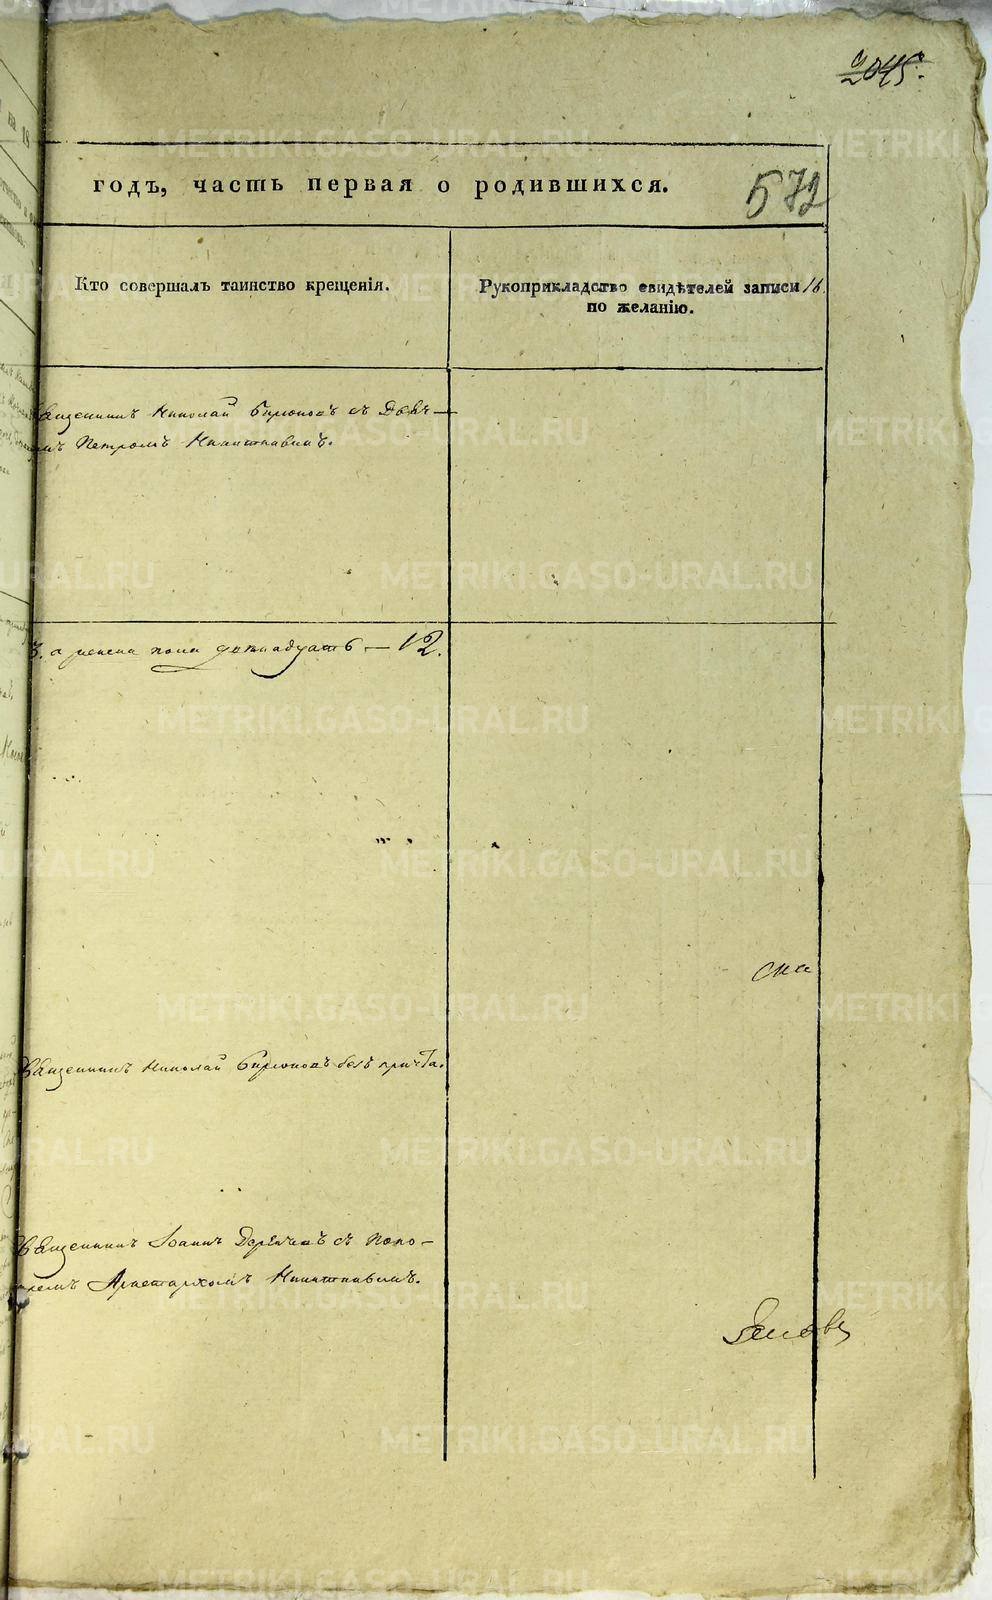 2045.
годъ, часть первая о родившихся.
572
Кто совершалъ таинство крещенія.
Рукоприкладство свидѣтелей записи
по желанію.
16.
Священникъ Николай Бирюковъ съ Дьяч-
комъ Петромъ Никитинымъ.
а женска пола двенадцать — 12.
Священникъ Николай Бирюковъ безъ причта.
Священникъ Іоаннъ съ Поно-
маремъ Аристархомъ Никитинымъ.
METRIKI.GASO-URAL.RU